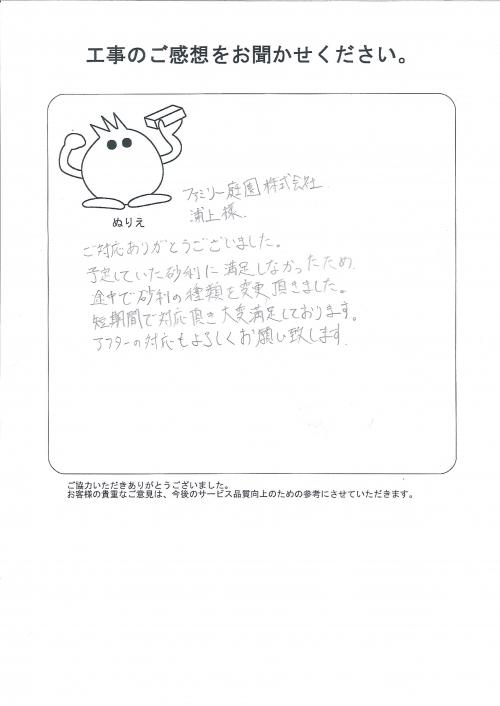 工事のご感想をお聞かせください。
ぬりえ
ファミリー庭園株式会社.
浦上様.
ご対応ありがとうございました。
予定していた砂利に満足しなかったため.
途中で砂利の種類を変更頂きました。
短期間で対応頂き大変満足しております。
アフターの対応もよろしくお願い致します.
ご協力いただきありがとうございました。
お客様の貴重なご意見は、今後のサービス品質向上のための参考にさせていただきます。